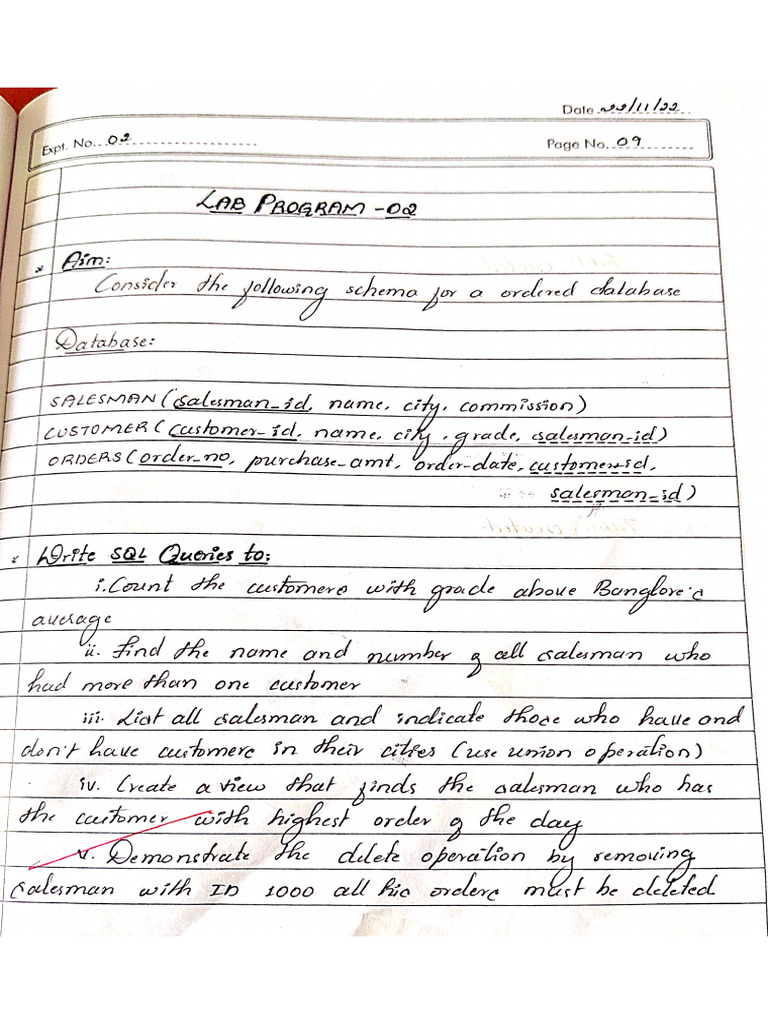 Date 22/11/22
Expt. No. 02
Page No. 09
LAB PROGRAM -02
* Aim:
Consider the following schema for a ordered database
Database:
SALESMAN (salesman_id, name, city, commission)
CUSTOMER (customer_id, name, city, grade, salesman_id)
ORDERS (order_no, purchase_amt, order_date, customer_id,
salesman_id)
* Write SQL Queries to:
i. Count the customers with grade above Banglore's
average
ii. Find the name and number of all salesman who
had more than one customer
iii. List all salesman and indicate those who have and
don't have customers in their cities (use union operation)
iv. Create a view that finds the salesman who has
the customer with highest order of the day
v. Demonstrate the delete operation by removing
salesman with ID 1000 all his orders must be deleted